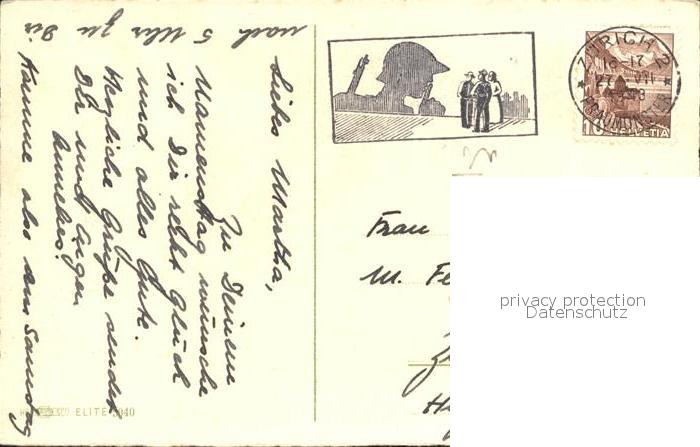 Liebe Martha,
Zu Deinem
Namenstag wünsche
ich Dir recht Glück
und alles Gute.
Herzliche Grüße sendet
Dir und Eugen
Annelies.
Komme also am Samstag
nach 5 Uhr zu Dir
ELITE 3040
ZÜRICH 2
FRAUMÜNSTER
16-17
27 VII
10 HELVETIA
Frau
M. Fe
Zü
privacy protection
Datenschutz